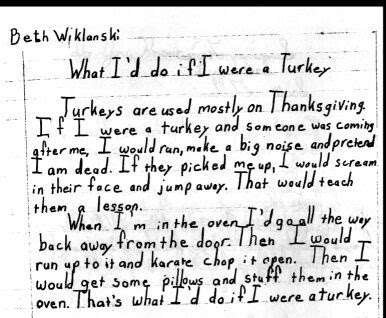 Beth Wiklanski
What I'd do if I were a Turkey
Turkeys are used mostly on Thanksgiving.
If I were a turkey and someone was coming
after me, I would run, make a big noise and pretend
I am dead. If they picked me up, I would scream
in their face and jump away. That would teach
them a lesson.
When I'm in the oven I'd go all the way
back away from the door. Then I would
run up to it and karate chop it open. Then I
would get some pillows and stuff them in the
oven. That's what I'd do if I were a turkey.